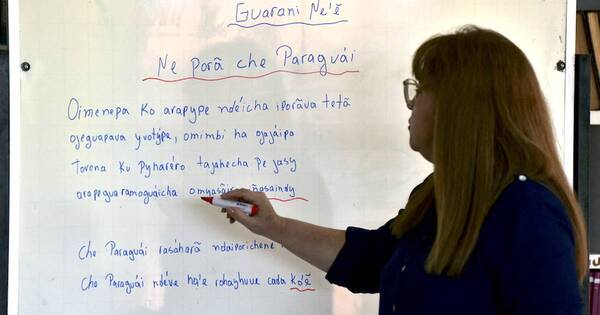 Guarani Ñe'ẽ
Ne Porã che Paraguái
Oimenepa Ko arapype ndéicha iporãva tetã
ojeguapava yvotýpe, omimbi ha ojajáipa
Tovena Ku Pyharéro tajahecha pe jasy
arapeguaramoguáicha
Che Paraguái rasáharã ndaiporichene
Che Paraguái ndéve ha'e rohayhuve cada Ko'ẽ